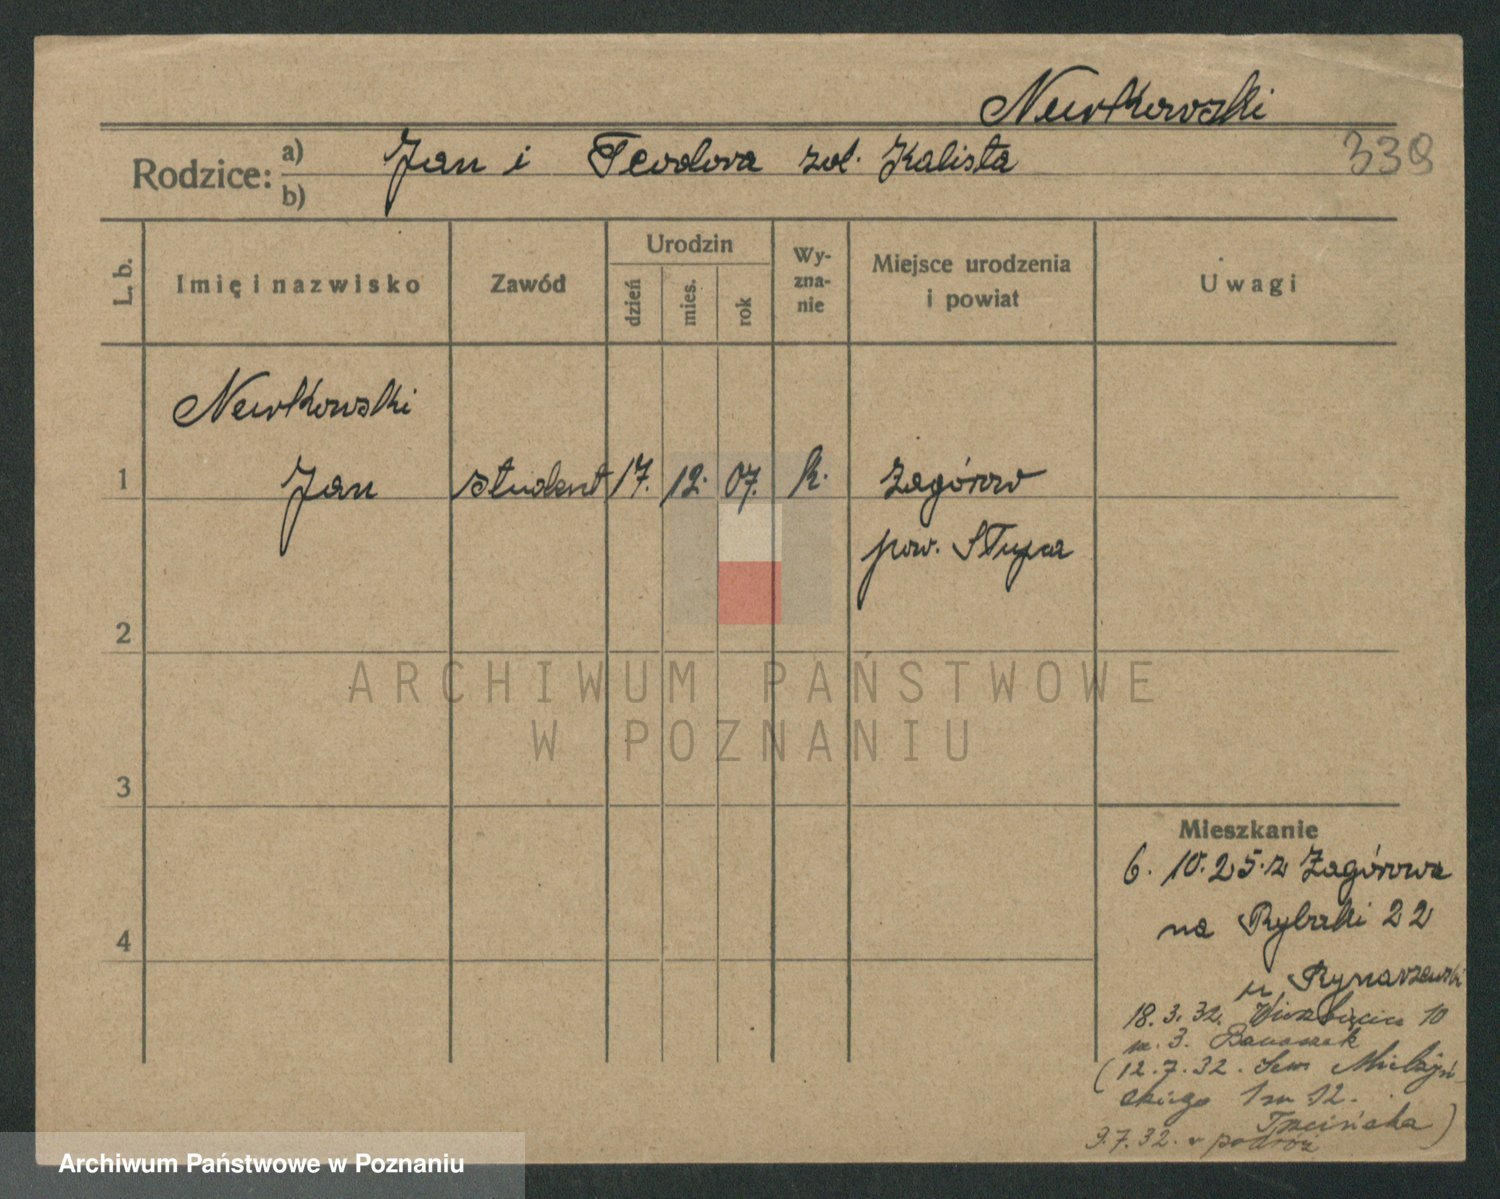 Newkowski
339
Rodzice: a) Jan i Teodora zd. Kalista
b)
L. b.
Imię i nazwisko
Zawód
Urodzin
dzień
mies.
rok
Wy-
zna-
nie
Miejsce urodzenia
i powiat
Uwagi
Newkowski
1 Jan student 17. 12. 07. k. Zagórów
pow. Słupca
2
ARCHIWUM PAŃSTWOWE
W POZNANIU
3
Mieszkanie
6. 10. 25. z Zagórowa
4
na Rybaki 22
u Rynarzewski
18. 3. 32. Wierzbięcice 10
m. 3. Banaszak
(12. 7. 32. Sew. Mielżyń-
skiego 1 m 12.
Trzcińska)
9. 7. 32. w podróż
Archiwum Państwowe w Poznaniu